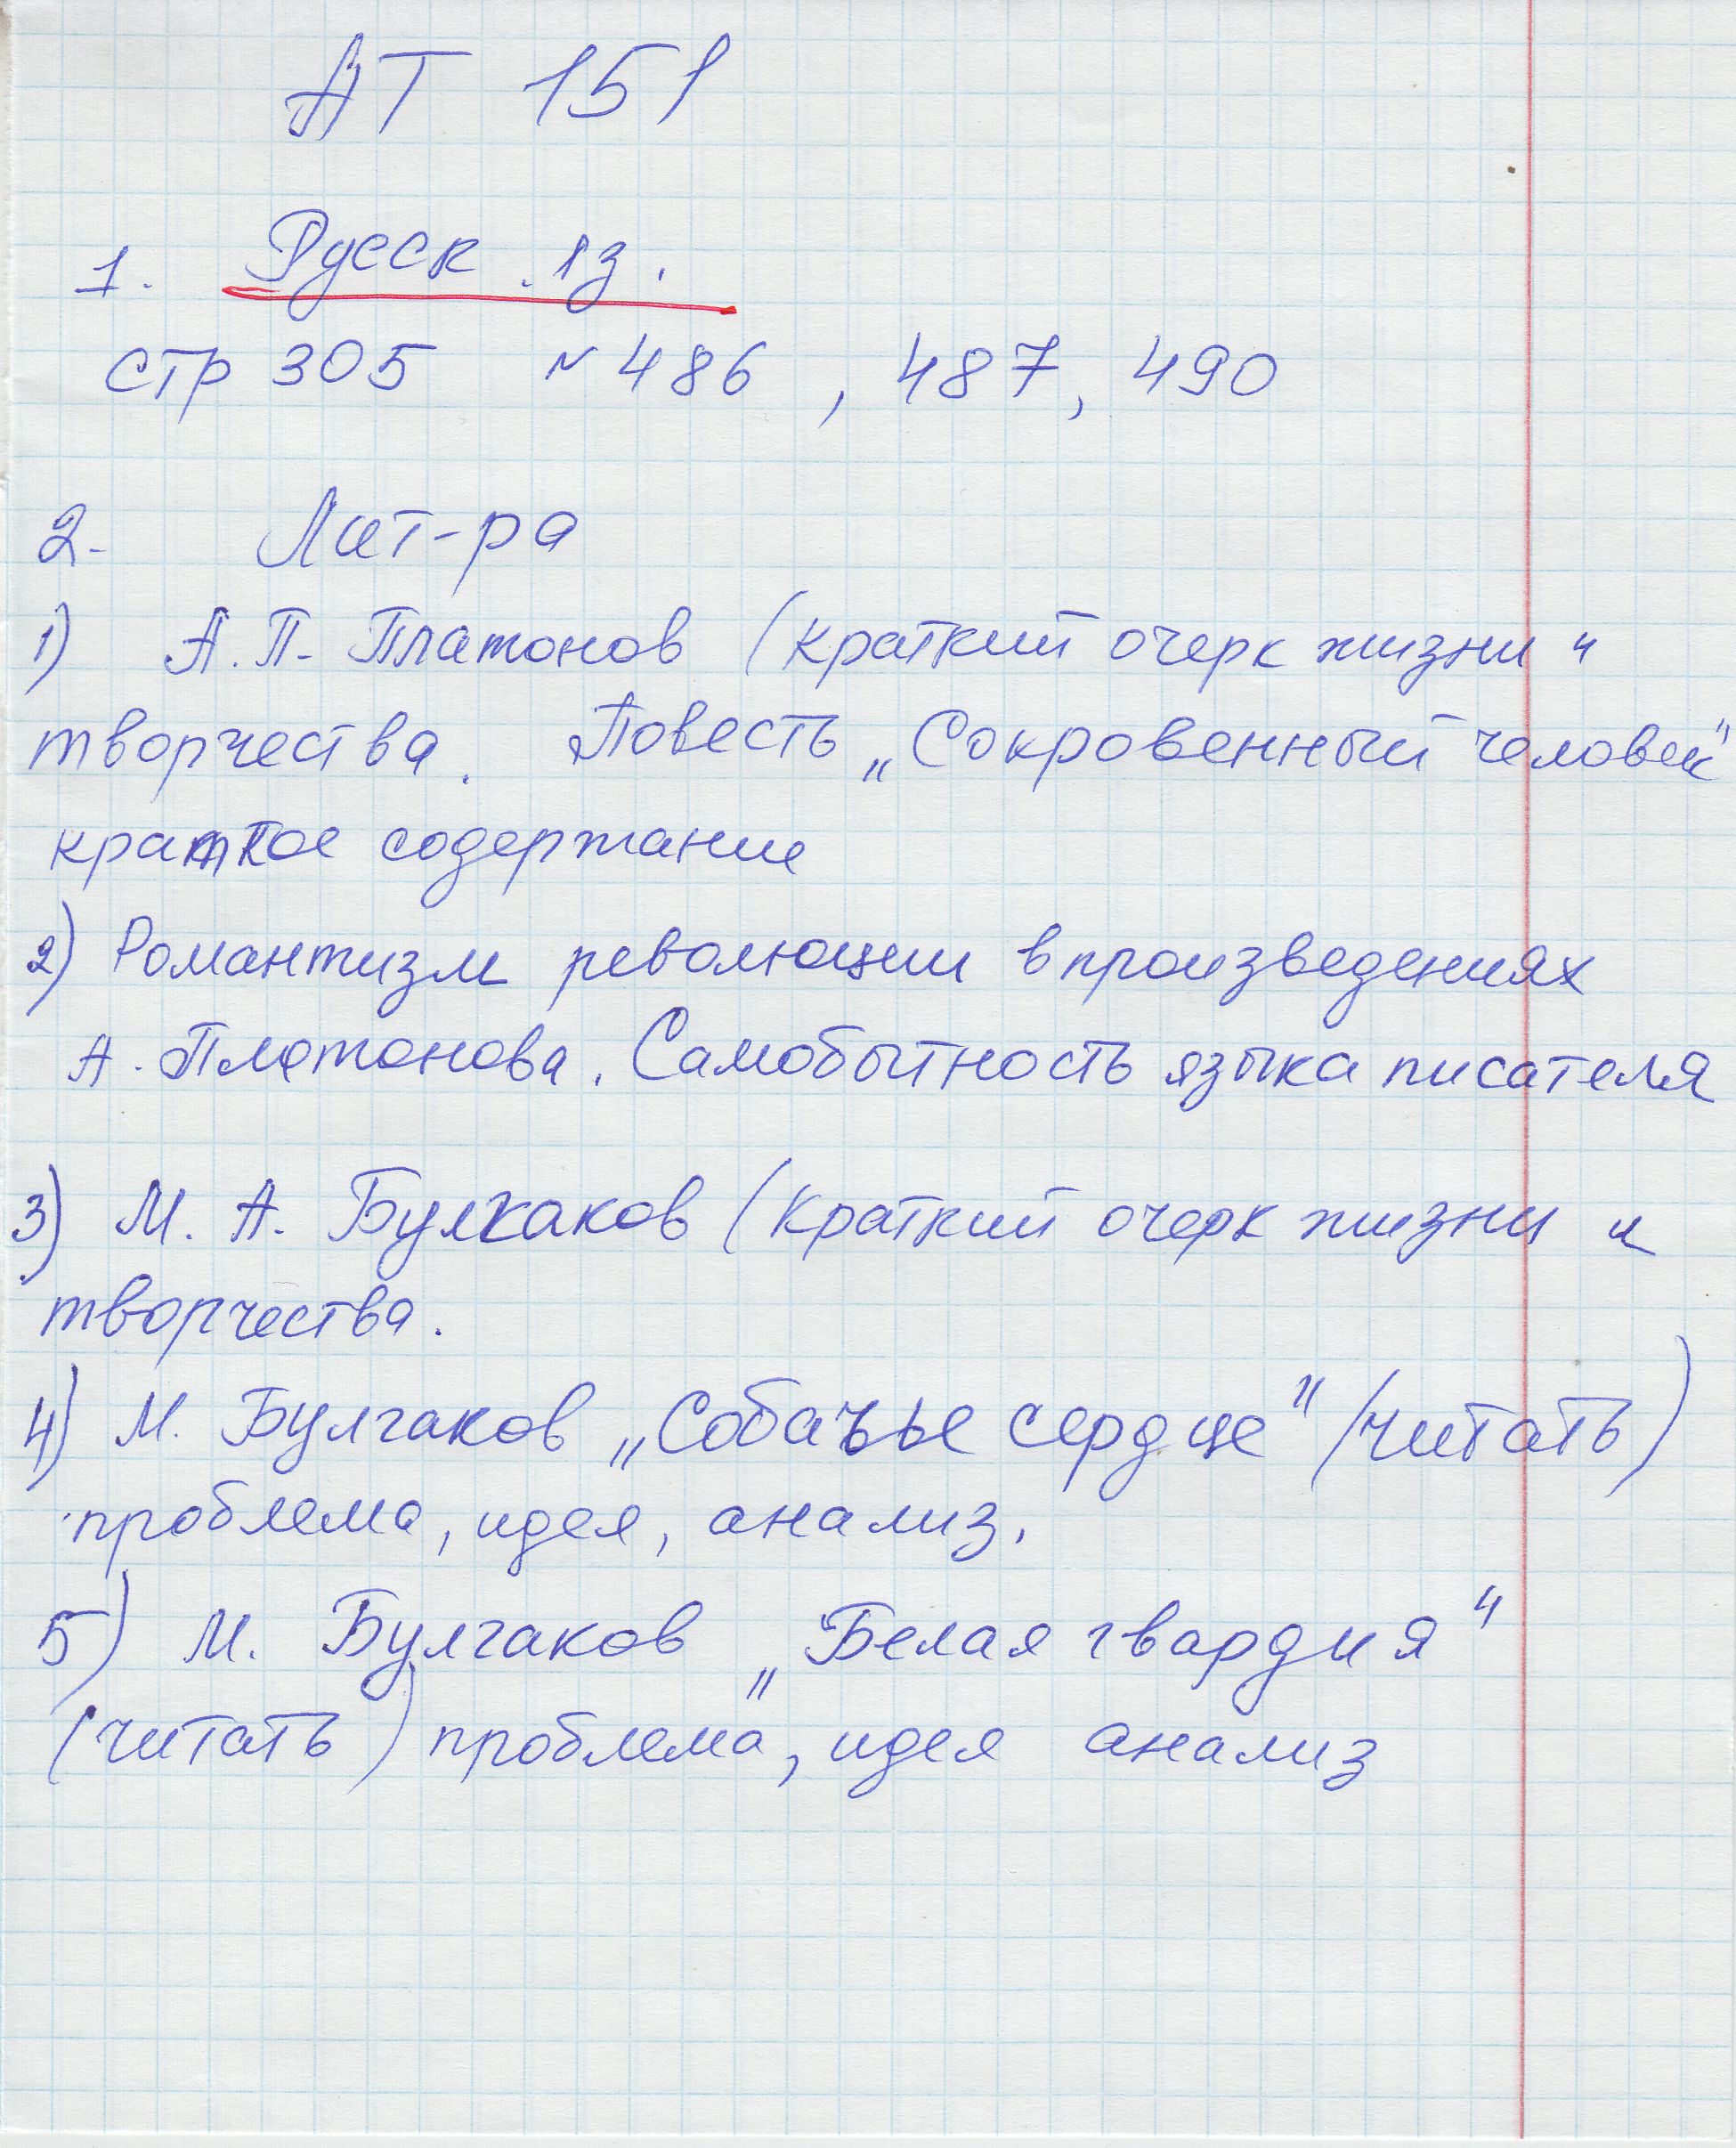 АТ 151
1. Русск. яз.
стр 305 № 486, 487, 490
2. Лит-ра
1) А.П. Платонов (краткий очерк жизни и
творчества. Повесть „Сокровенный человек"
краткое содержание
2) Романтизм революции в произведениях
А. Платонова. Самобытность языка писателя
3) М. А. Булгаков (краткий очерк жизни и
творчества.
4) М. Булгаков „Собачье сердце" (читать)
проблема, идея, анализ.
5) М. Булгаков „Белая гвардия"
(читать) проблема, идея анализ